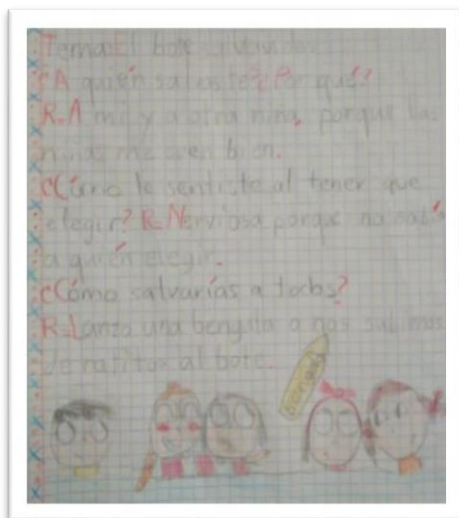 Tema: El bote salvavidas
¿A quién salvaste? ¿Por qué?
R.A mí y a otra niña, porque las
niñas me caen bien.
¿Cómo te sentiste al tener que
elegir? R.Nerviosa porque no sabía
a quién elegir.
¿Cómo salvarías a todos?
R.Lanzo una bengala o nos subimos
de ratitos al bote.